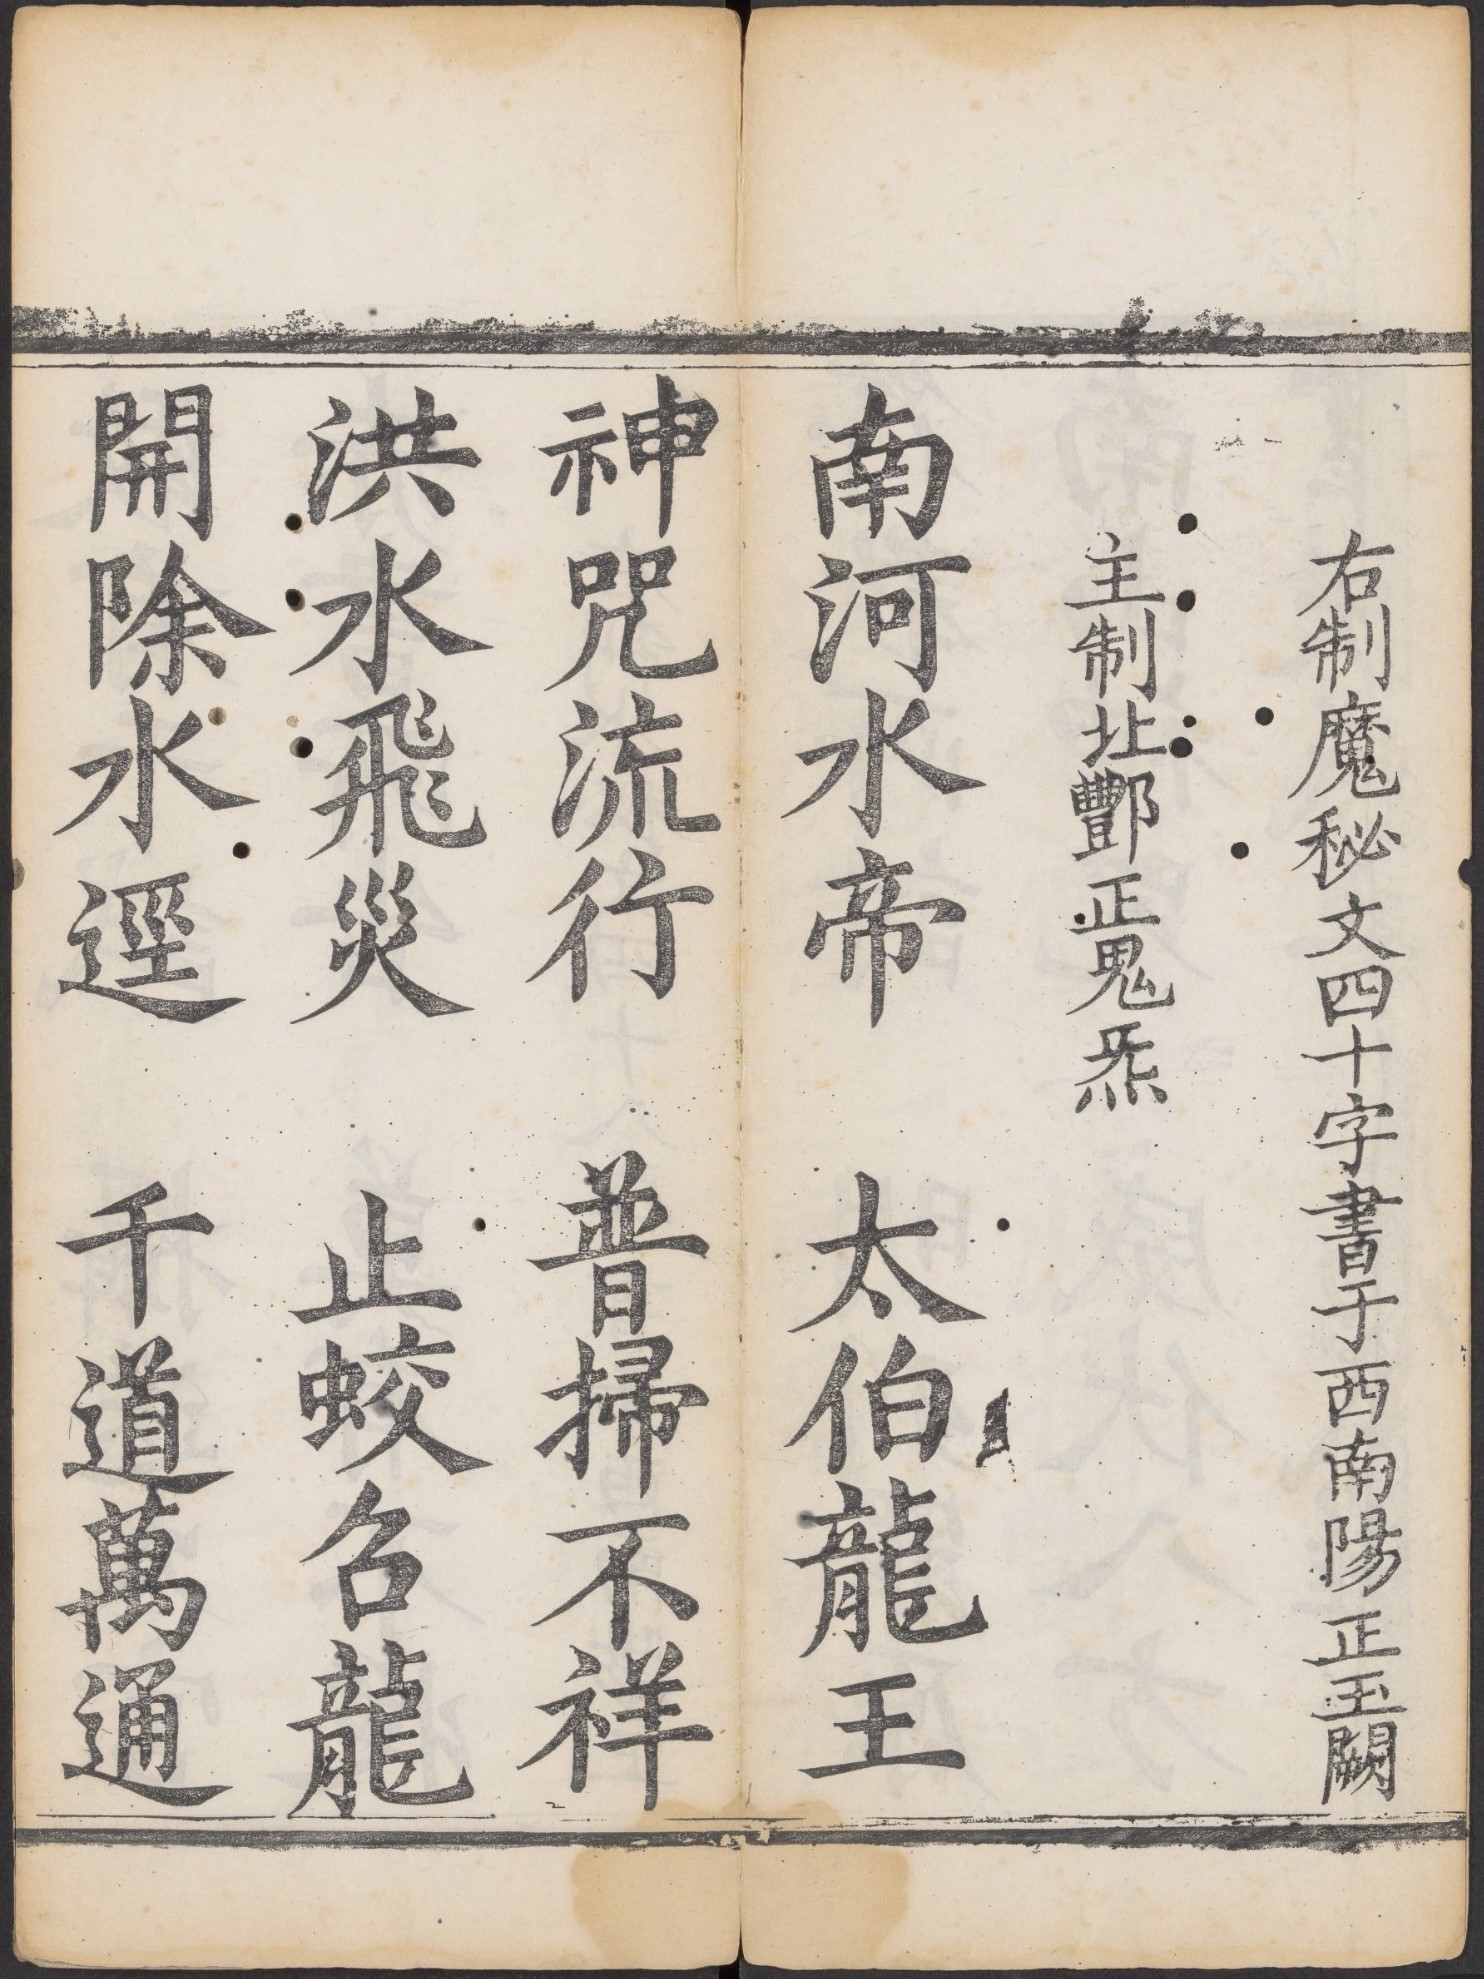 右制魔秘文四十字書于西南陽正玉闕
主制北酆正鬼炁
南河水帝 太伯龍王
神咒流行 普掃不祥
洪水飛災 止蛟召龍
開除水逕 千道萬通